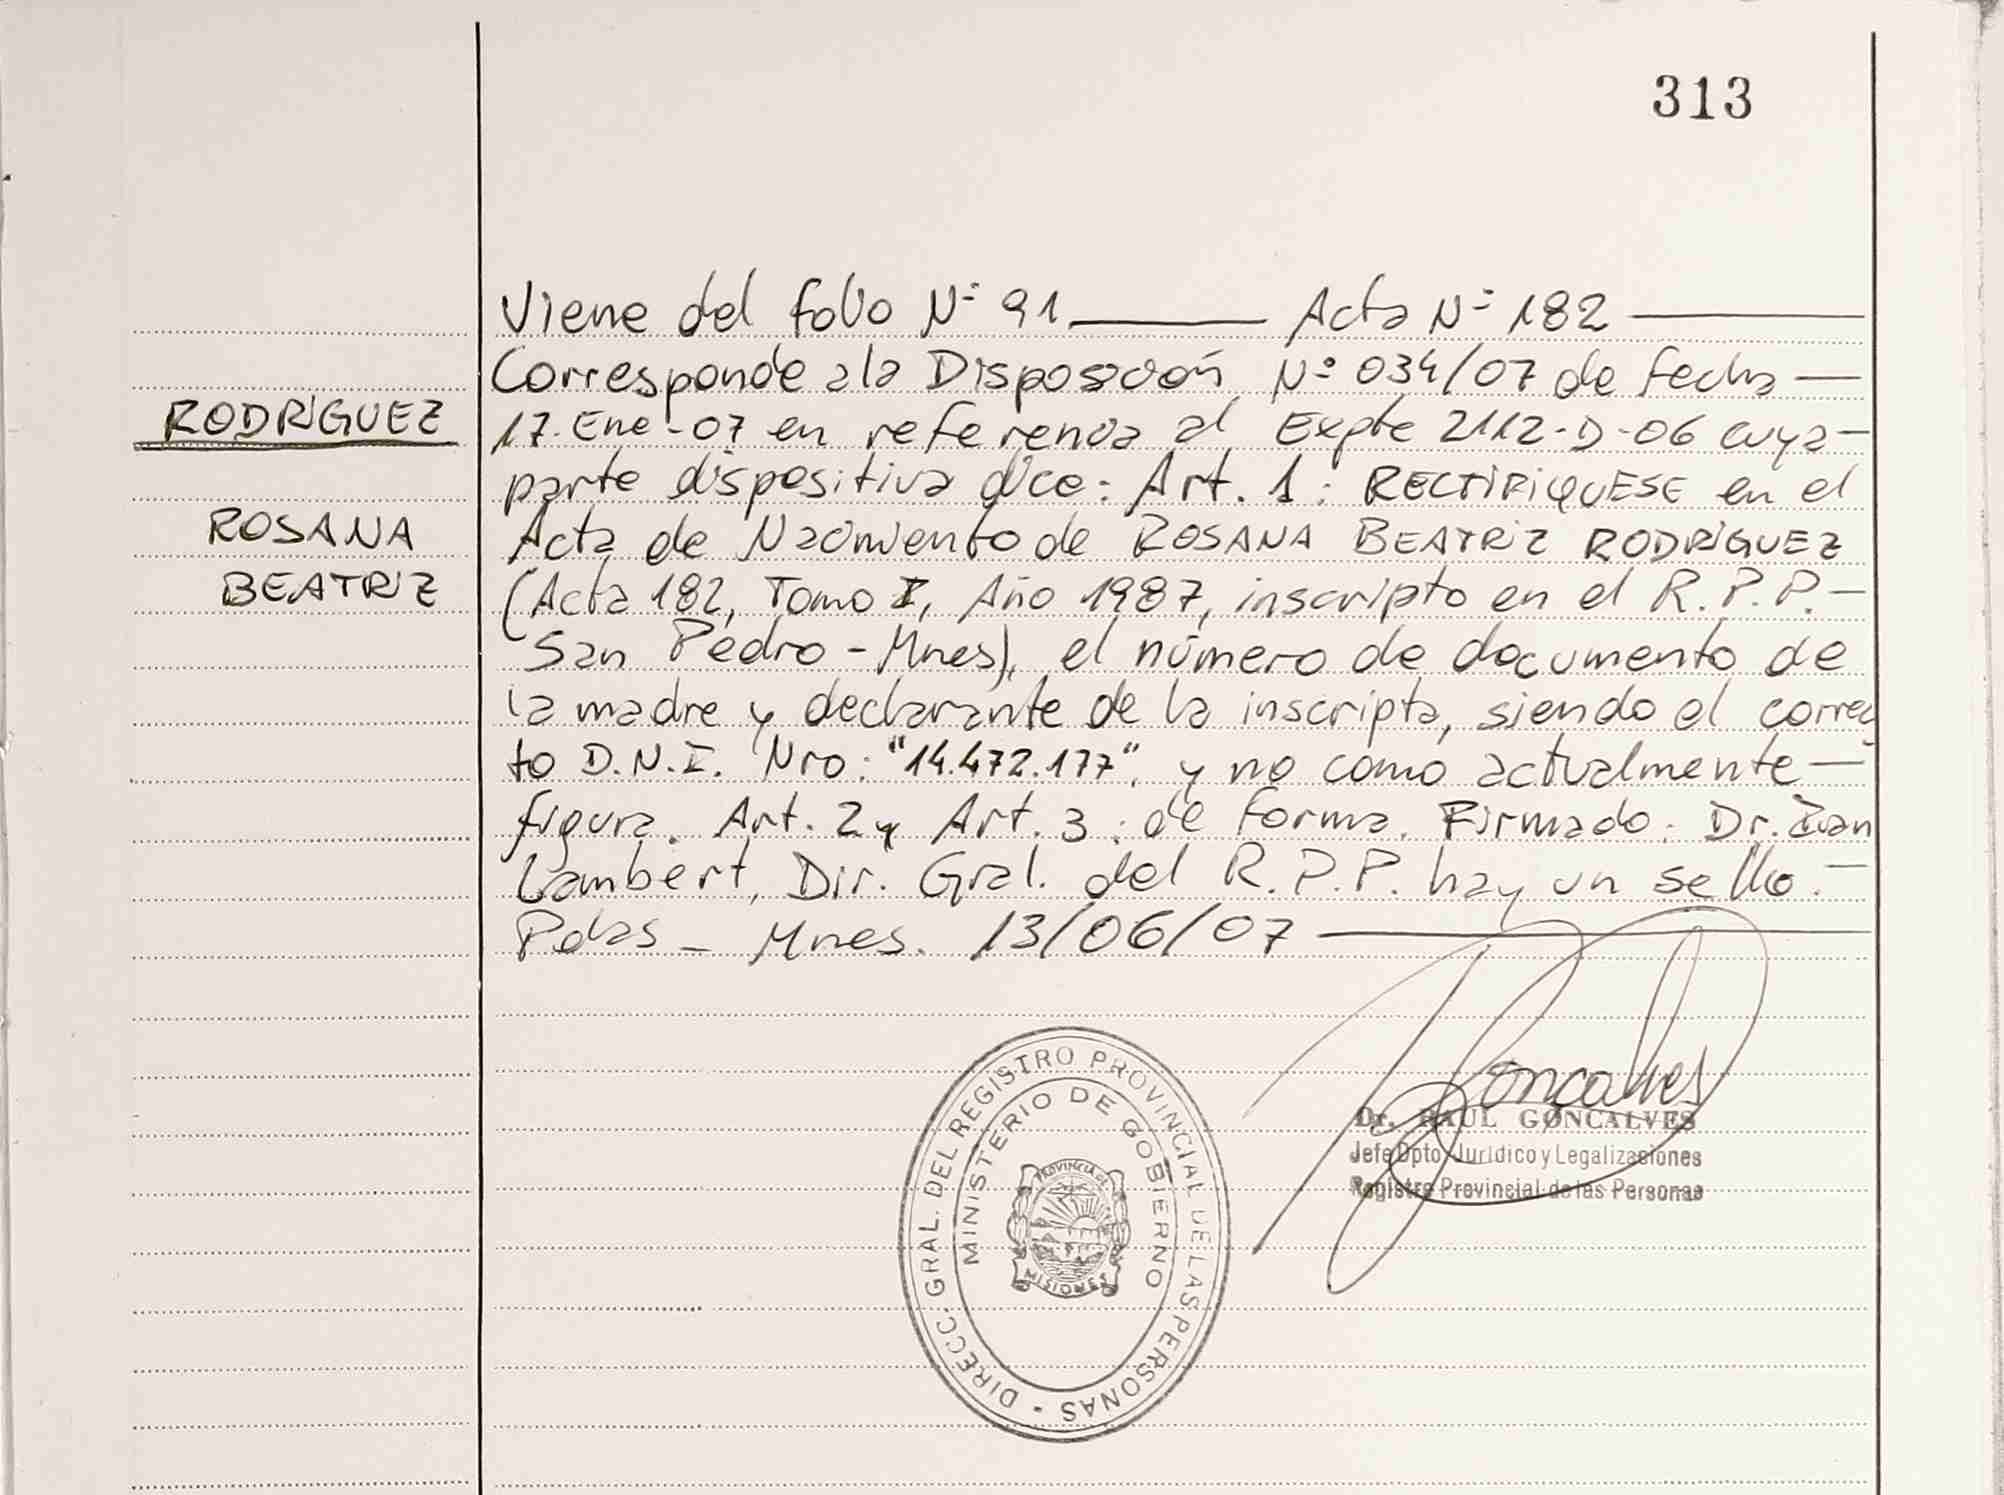 313
Viene del folio Nº 91 —— Acta Nº 182 ——
Corresponde a la Disposición Nº 034/07 de fecha —
RODRIGUEZ
17-Ene-07 en referencia al Expte 2112-D-06 cuya —
parte dispositiva dice: Art. 1: RECTIFIQUESE en el
ROSANA
Acta de Nacimiento de ROSANA BEATRIZ RODRIGUEZ
BEATRIZ
(Acta 182, Tomo I, Año 1987, inscripto en el R.P.P. —
San Pedro - Mnes), el número de documento de
la madre y declarante de la inscripta, siendo el correc
to D.N.I. Nro: "14.472.177", y no como actualmente —
figura. Art. 2 y Art. 3: de forma. Firmado: Dr. Iván
Lambert, Dir. Gral. del R.P.P. hay un sello. —
Pdas - Mnes. 13/06/07 ——
DIRECC. GRAL. DEL REGISTRO PROVINCIAL DE LAS PERSONAS -
MINISTERIO DE GOBIERNO
PROVINCIA DE
MISIONES
Goncalves
Dr. RAUL GONCALVES
Jefe Dpto. Jurídico y Legalizaciones
Registro Provincial de las Personas